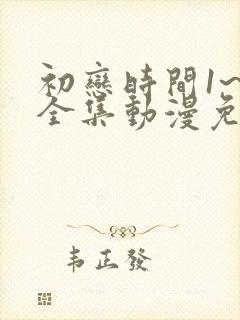 初戀時間1~
全集動漫免
韦正發